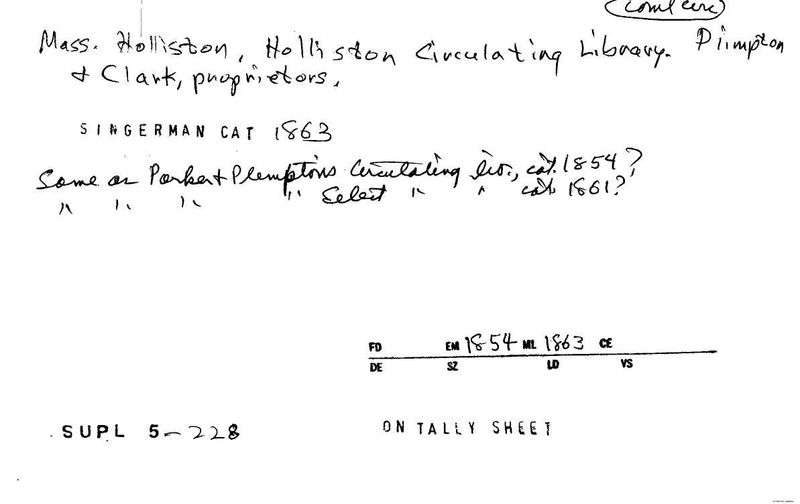 (Coml circ)
Mass. Holliston, Holliston Circulating Library. Plimpton
& Clark, proprietors.
SINGERMAN CAT 1863
Same as Parker & Plimptons Circulating lib., cat. 1854?
" " " " Select " " cat. 1861?
FD EM 1854 ML 1863 CE
DE SZ LD VS
SUPL 5-228
ON TALLY SHEET